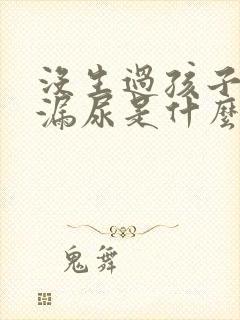 沒生過孩子
漏尿是什麼
鬼舞